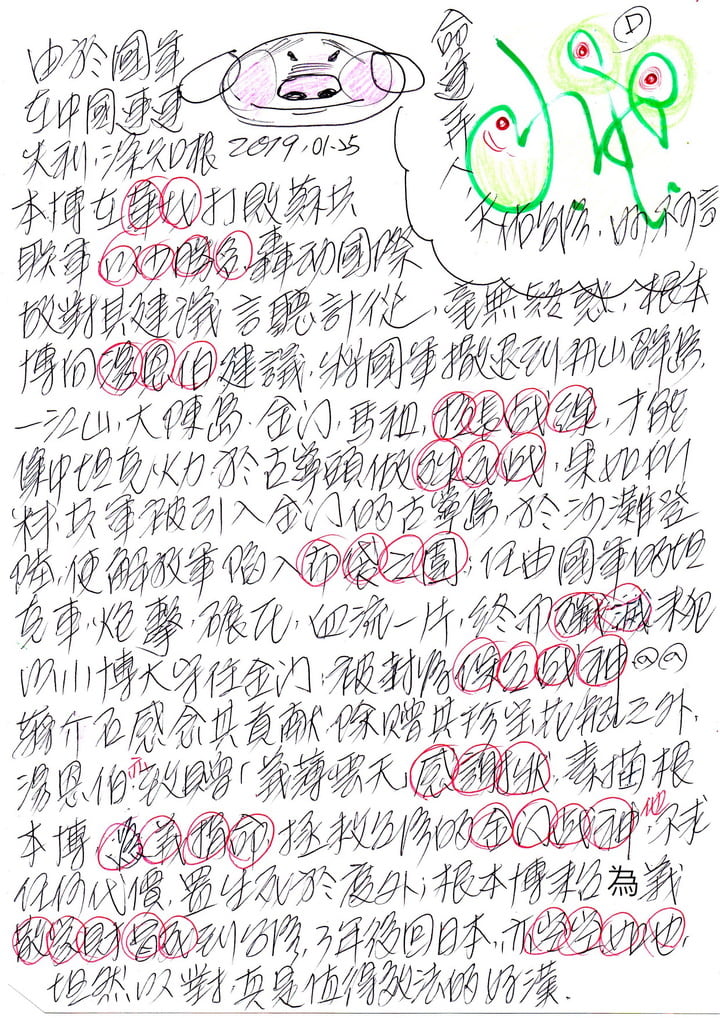 由於國軍
在中國連連
失利,深知根 2019.01.25
本博在華北打敗蘇坑
聯軍以少勝多,轟动國際
故對其建議言聽計從,毫無疑惑,根本
博向湯恩伯建議,將國軍撤退到舟山群島,
一江山,大陳島.金门,馬祖,拉長战線,才能
集中坦克火力於古寧頭做殲滅战,果如所
料,共軍被引入金门的古寧島,於沙灘登
陸,使解放軍陷入布袋之圍;任由國軍的坦
克車,炮擊,碾死,血流一片,終而殲滅來犯
以小博大守住金门,被封為保台战神
蔣介石感念其貢献,除贈其珍宝花瓶之外,
湯恩伯亦致贈「義薄雲天」感謝狀.素描根
本博為義捐命,拯救台灣的金门战神,他不求
任何代價,置生死於度外;根本博來台為義
散盡財富到台灣,3年後回日本,亦空空如也,
坦然以對,真是值得效法的好漢.
命運弄人
D